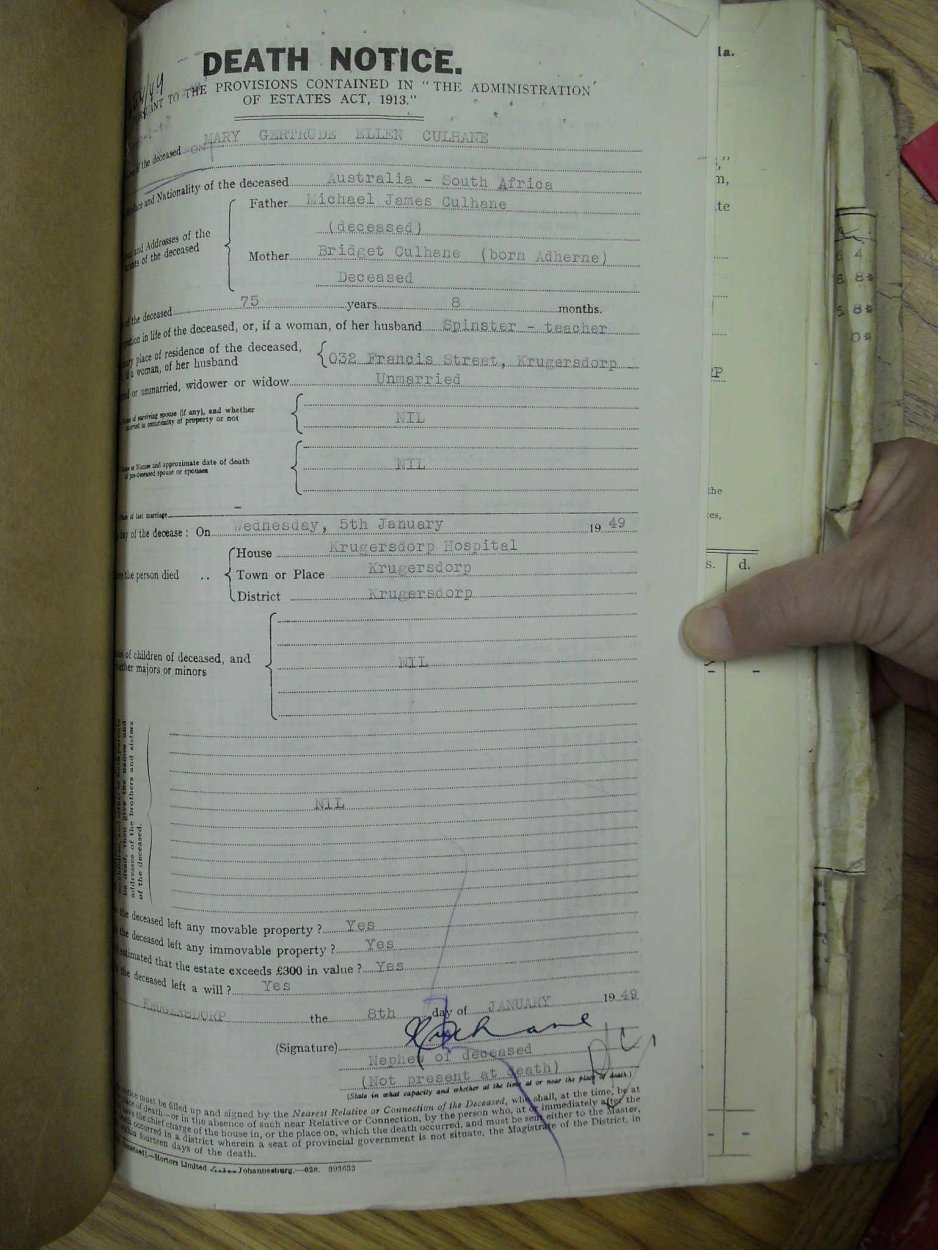 DEATH NOTICE.
THE PROVISIONS CONTAINED IN "THE ADMINISTRATION
OF ESTATES ACT, 1913."
of the deceased MARY GERTRUDE ELLEN CULHANE
and Nationality of the deceased Australia - South Africa
and Addresses of the
of the deceased
Father Michael James Culhane
(deceased)
Mother Bridget Culhane (born Adherne)
Deceased
of the deceased 75 years 8 months.
in life of the deceased, or, if a woman, of her husband Spinster - teacher
place of residence of the deceased,
a woman, of her husband
032 Francis Street, Krugersdorp
or unmarried, widower or widow Unmarried
of surviving spouse (if any), and whether
married in community of property or not
NIL
or Names and approximate date of death
of pre-deceased spouse or spouses
NIL
Place of last marriage -
day of the deceased : On Wednesday, 5th January 19 49
the person died ..
House Krugersdorp Hospital
Town or Place Krugersdorp
District Krugersdorp
of children of deceased, and
whether majors or minors
NIL
be dead, then give the names and
addresses of the brothers and sisters
of the deceased.
NIL
the deceased left any movable property ? Yes
the deceased left any immovable property ? Yes
estimated that the estate exceeds £300 in value ? Yes
the deceased left a will ? Yes
KRUGERSDORP the 8th day of JANUARY 19 49
(Signature) Culhane
Nephew of deceased
(Not present at death)
(State in what capacity and whether at the time at or near the place of death)
must be filled up and signed by the Nearest Relative or Connection of the Deceased, who shall, at the time, be at
place of death—or in the absence of such near Relative or Connection, by the person who, at or immediately after the
the chief charge of the house in, or the place on, which the death occurred, and must be sent either to the Master,
occurred in a district wherein a seat of provincial government is not situate, the Magistrate of the District, in
fourteen days of the death.
Hortors Limited Johannesburg.—628. 393033
la.
te
the
s. d.